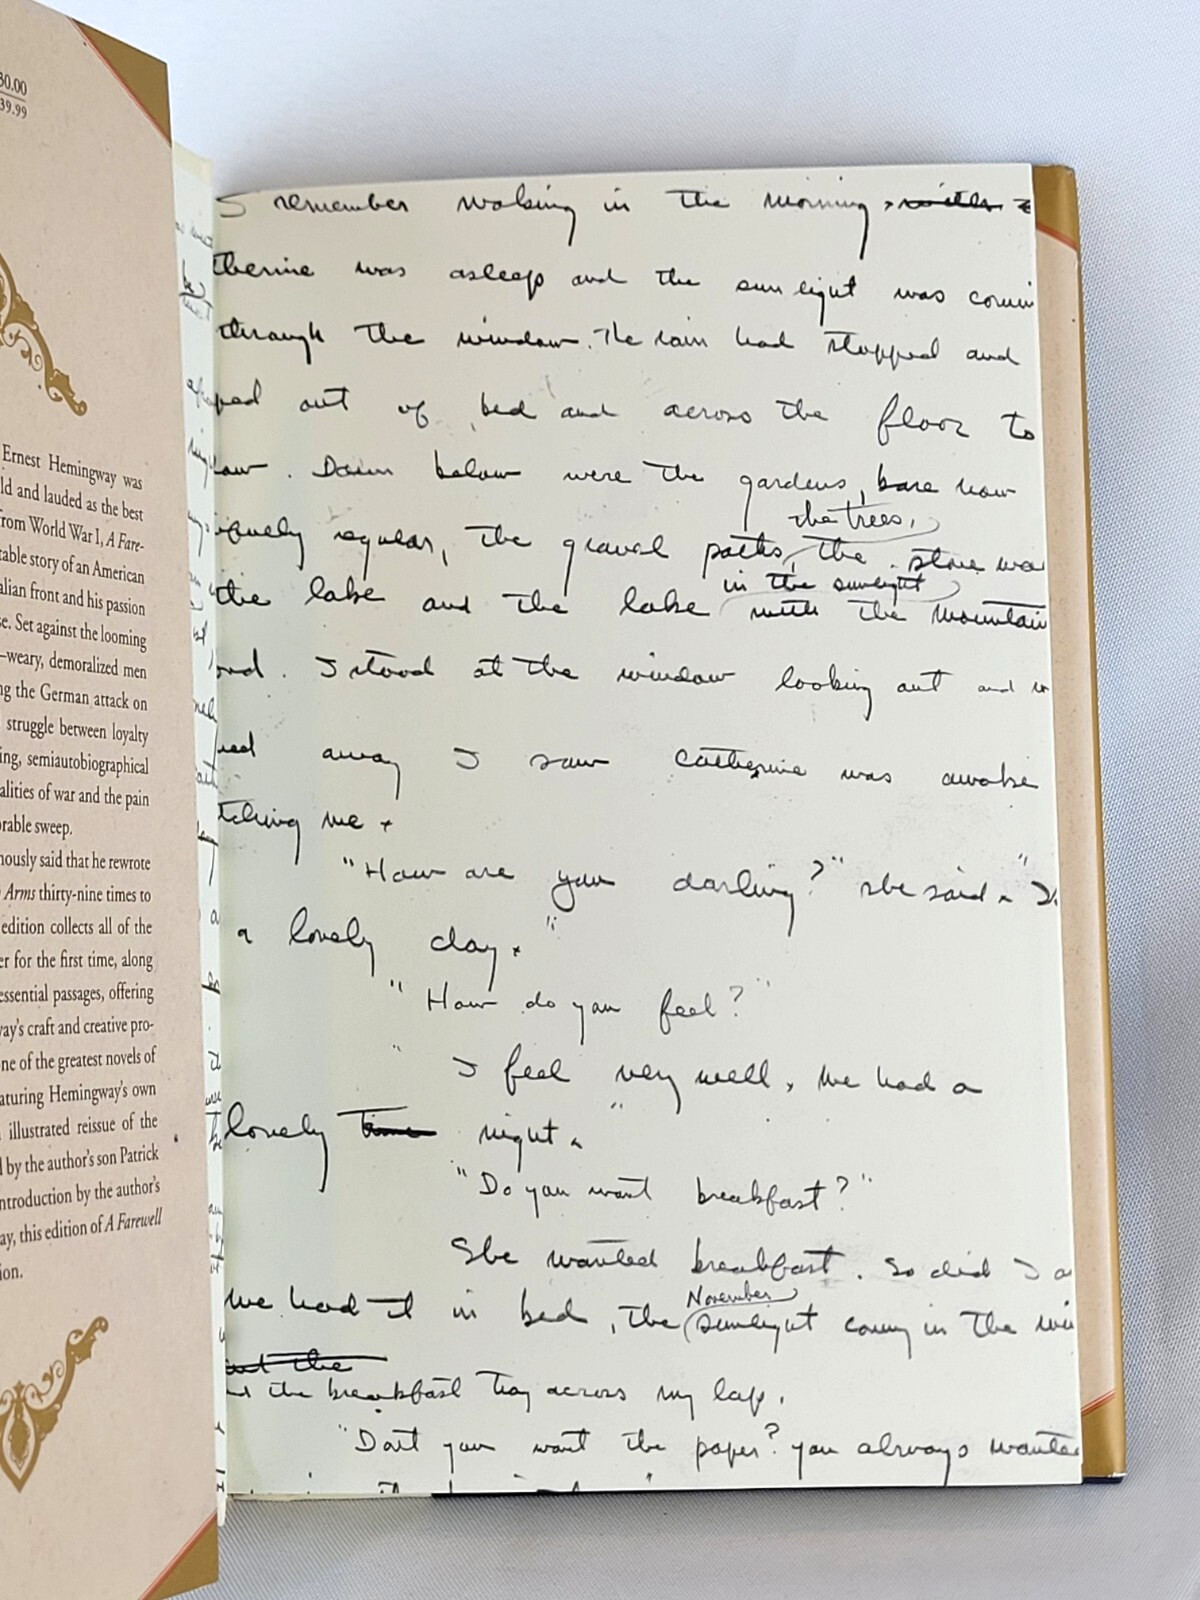 30.00
39.99
Ernest Hemingway was
ld and lauded as the best
from World War I, A Fare-
table story of an American
alian front and his passion
se. Set against the looming
—weary, demoralized men
ng the German attack on
struggle between loyalty
ing, semiautobiographical
alities of war and the pain
orable sweep.
nously said that he rewrote
Arms thirty-nine times to
edition collects all of the
er for the first time, along
essential passages, offering
way's craft and creative pro-
ne of the greatest novels of
aturing Hemingway's own
illustrated reissue of the
d by the author's son Patrick
ntroduction by the author's
ay, this edition of A Farewell
ion.
I remember waking in the morning,
therine was asleep and the sunlight was comin
through the window. The rain had stopped and
pped out of bed and across the floor to
dow. Down below were the gardens, bare now
iquely regular, the gravel paths, the trees, the stone wa
the lake and the lake in the sunlight with the mountain
ond. I stood at the window looking out and w
ned away I saw Catherine was awake
tching me.
"How are you darling?" she said. "I
a lovely day."
"How do you feel?"
I feel very well. We had a
lovely time night."
"Do you want breakfast?"
She wanted breakfast. So did I a
We had it in bed, the November sunlight coming in the win
out the
nd the breakfast tray across my lap.
"Dont you want the paper? You always wanted